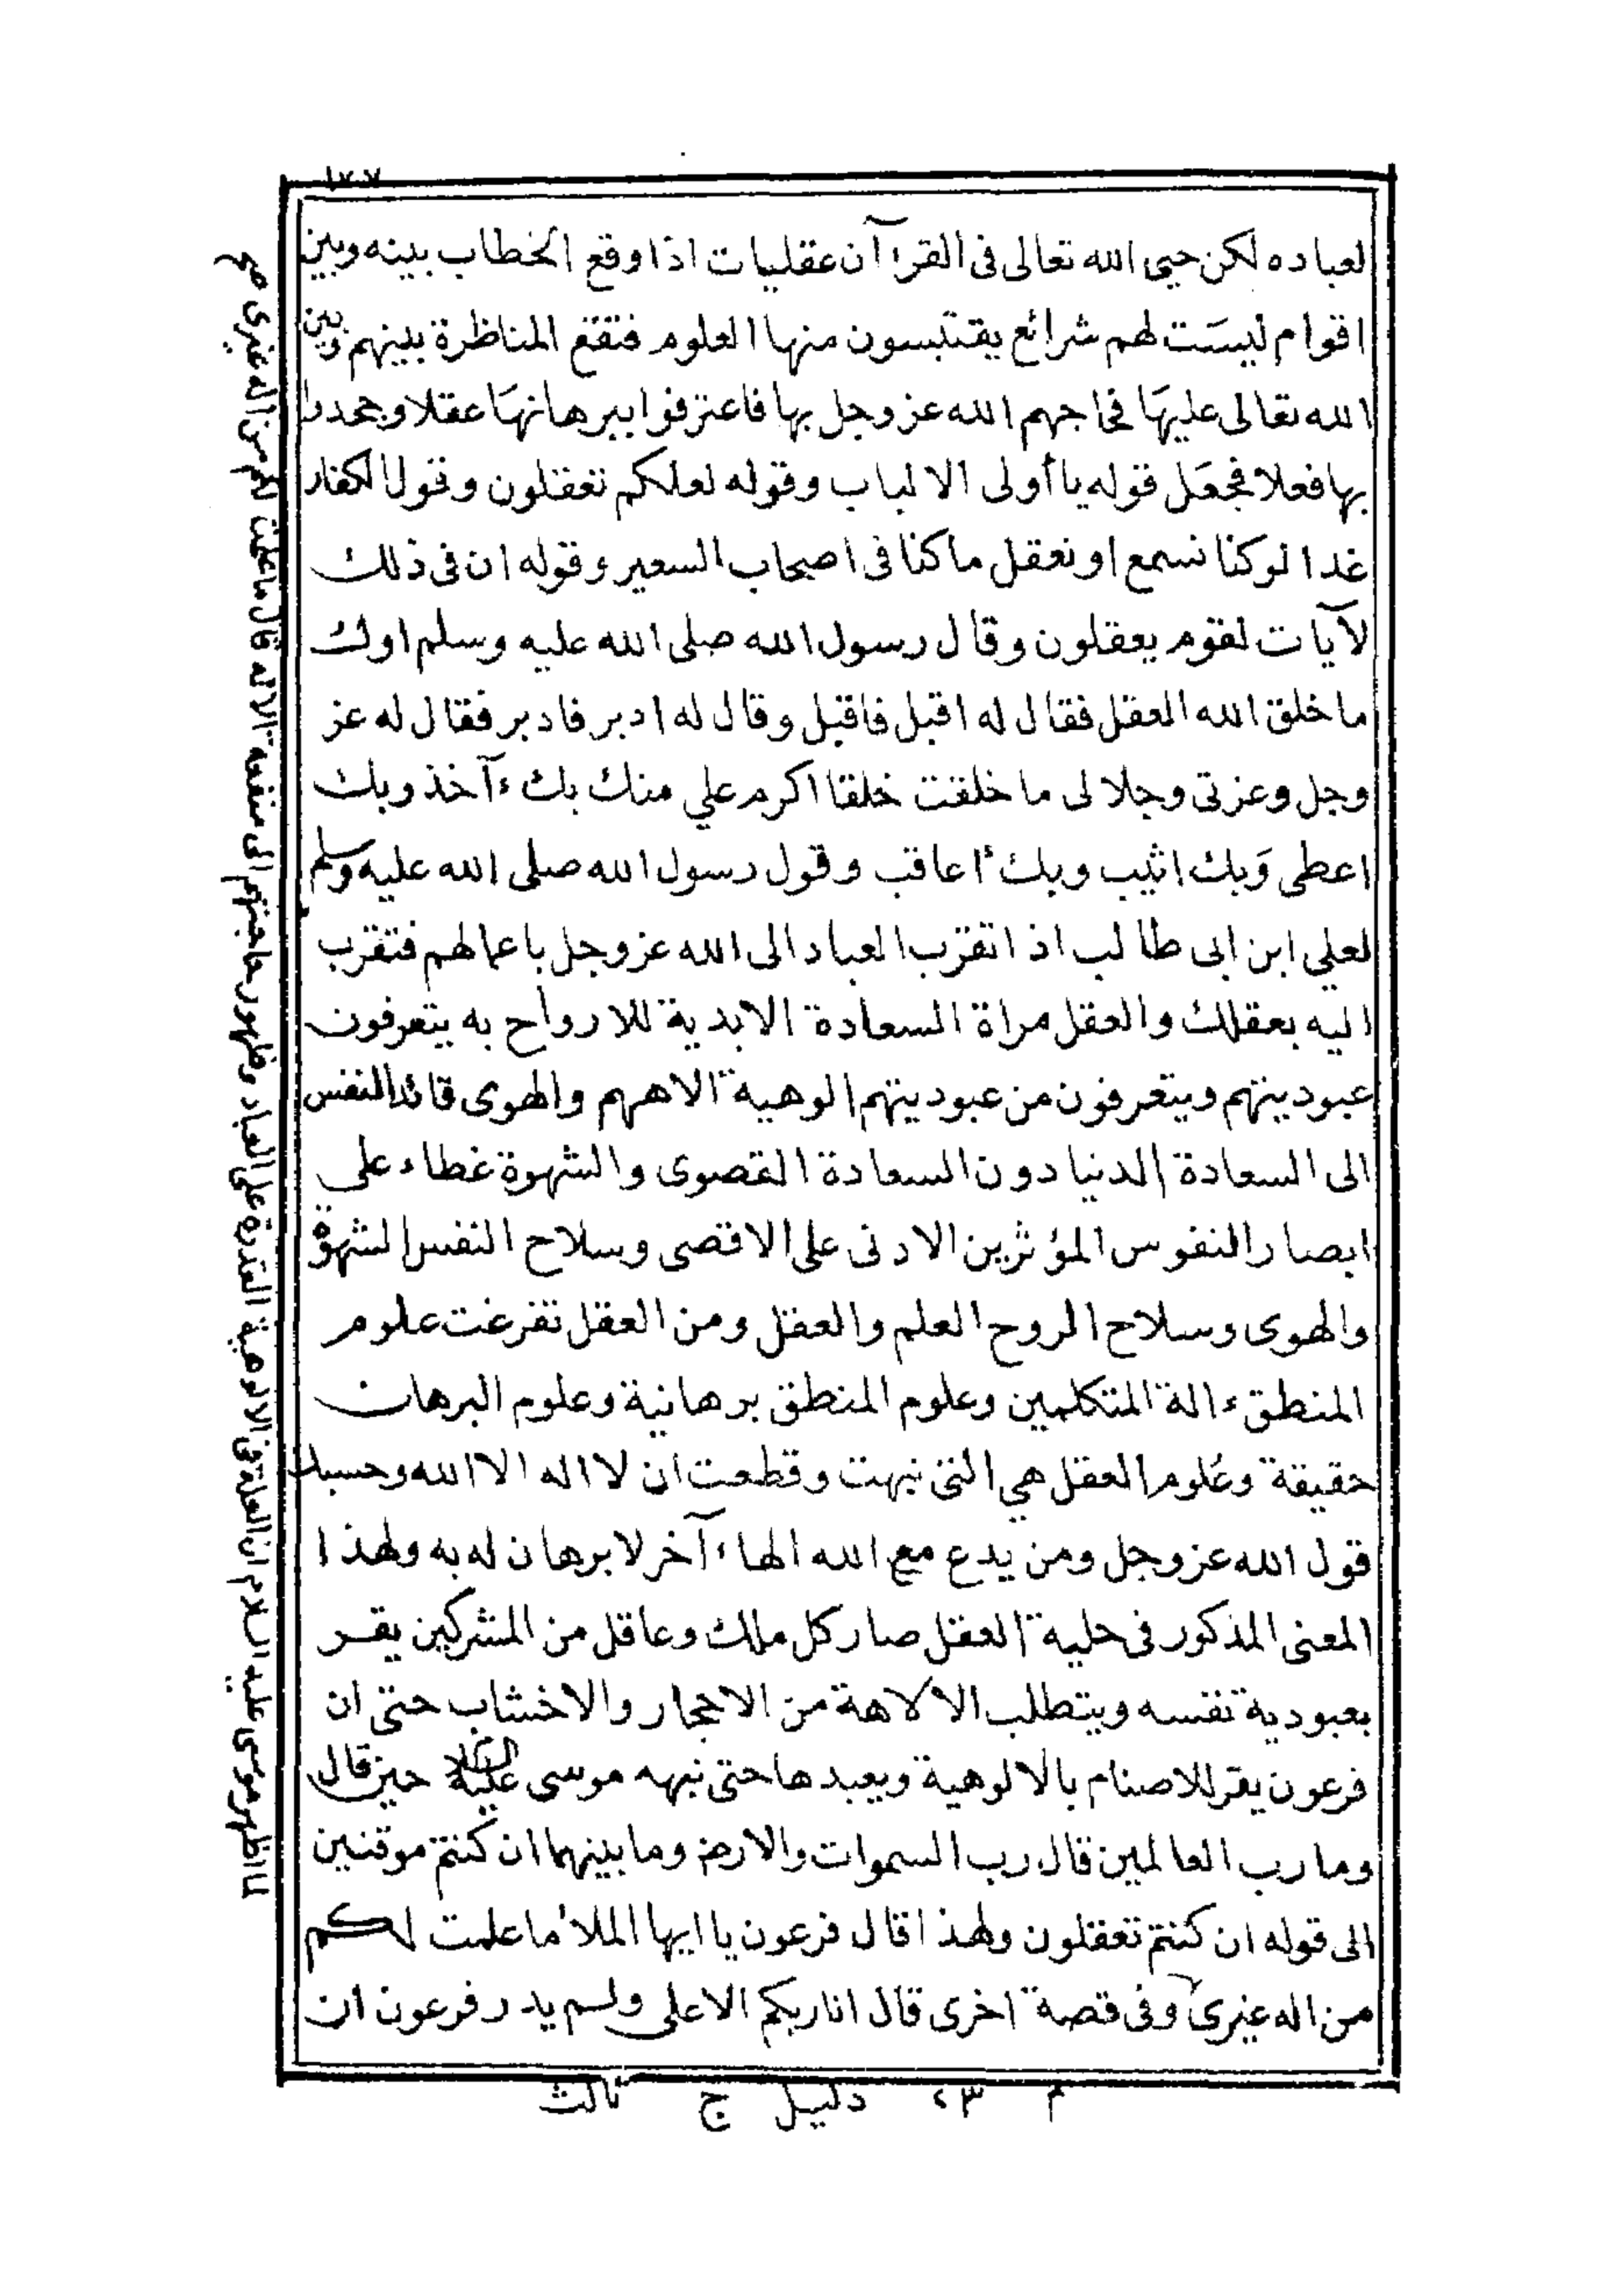 ١٧٧
لعباده لكن حكى الله تعالى فى القرءآن عقليات اذا وقع الخطاب بينه وبين
اقوام ليست لهم شرائع يقتبسون منها العلوم فتقع المناظرة بينهم وبين
الله تعالى عليها فحاجهم الله عز وجل بها فاعترفوا ببرهانها عقلا وجحدوا
بها فعلا فجعل قوله يا أولى الالباب وقوله لعلكم تعقلون وقول الكفار
غدا لو كنا نسمع او نعقل ما كنا فى اصحاب السعير وقوله ان فى ذلك
لآيات لقوم يعقلون وقال رسول الله صلى الله عليه وسلم اول
ما خلق الله العقل فقال له اقبل فاقبل وقال له ادبر فادبر فقال له عز
وجل وعزتى وجلالى ما خلقت خلقا اكرم علي منك بك ءآخذ وبك
اعطى وَبك اثيب وبك أعاقب وقول رسول الله صلى الله عليه وسلم
لعلي ابن ابى طالب اذا تقرب العباد الى الله عز وجل باعمالهم فتقرب
اليه بعقلك والعقل مراة السعادة الابدية للارواح به يتعرفون
عبوديتهم ويتعرفون من عبوديتهم الوهية الاههم والهوى قائد النفس
الى السعادة الدنيا دون السعادة القصوى والشهوة غطاء على
ابصار النفوس المؤثرين الادنى على الاقصى وسلاح النفس الشهوة
والهوى وسلاح الروح العلم والعقل ومن العقل تفرغت علوم
المنطق ءالة المتكلمين وعلوم المنطق برهانية وعلوم البرهان
حقيقة وعُلوم العقل هي التى نبهت وقطعت ان لا اله الا الله وحسبك
قول الله عز وجل ومن يدع مع الله الها ءآخر لا برهان له به ولهذا
المعنى المذكور فى حلية العقل صار كل ملك وعاقل من المشركين يقر
بعبودية نفسه ويتطلب الالاهة من الاحجار والاخشاب حتى ان
فرعون يقر للاصنام بالالوهية ويعبدها حتى نبهه موسى عليه السلام حين قال
وما رب العالمين قال رب السموات والارض وما بينهما ان كنتم موقنين
الى قوله ان كنتم تعقلون ولهذا قال فرعون يا ايها الملأ ما علمت لكم
من اله غيرى وفى قصة اخرى قال انا ربكم الاعلى ولم يدر فرعون ان
م ٢٣ دليل ج ثالث
لما اظهر موسى عليه السلام ان العلة فى الالوهية القدرة على العباد وظهور حاجتهم الى منفعة الاله قال ما علمت لكم من اله غيرى صح